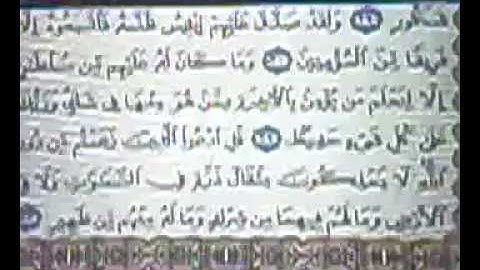 شكور ١٩ ولقد صدق عليهم إبليس ظنه فاتبعوه إلا
فريقا من المؤمنين ٢٠ وما كان له عليهم من سلطان
إلا لنعلم من يؤمن بالآخرة ممن هو منها في شك وربك
على كل شيء حفيظ ٢١ قل ادعوا الذين زعمتم من دون
الله لا يملكون مثقال ذرة في السموت ولا
الأرض وما لهم فيهما من شرك وما له منهم من ظهير